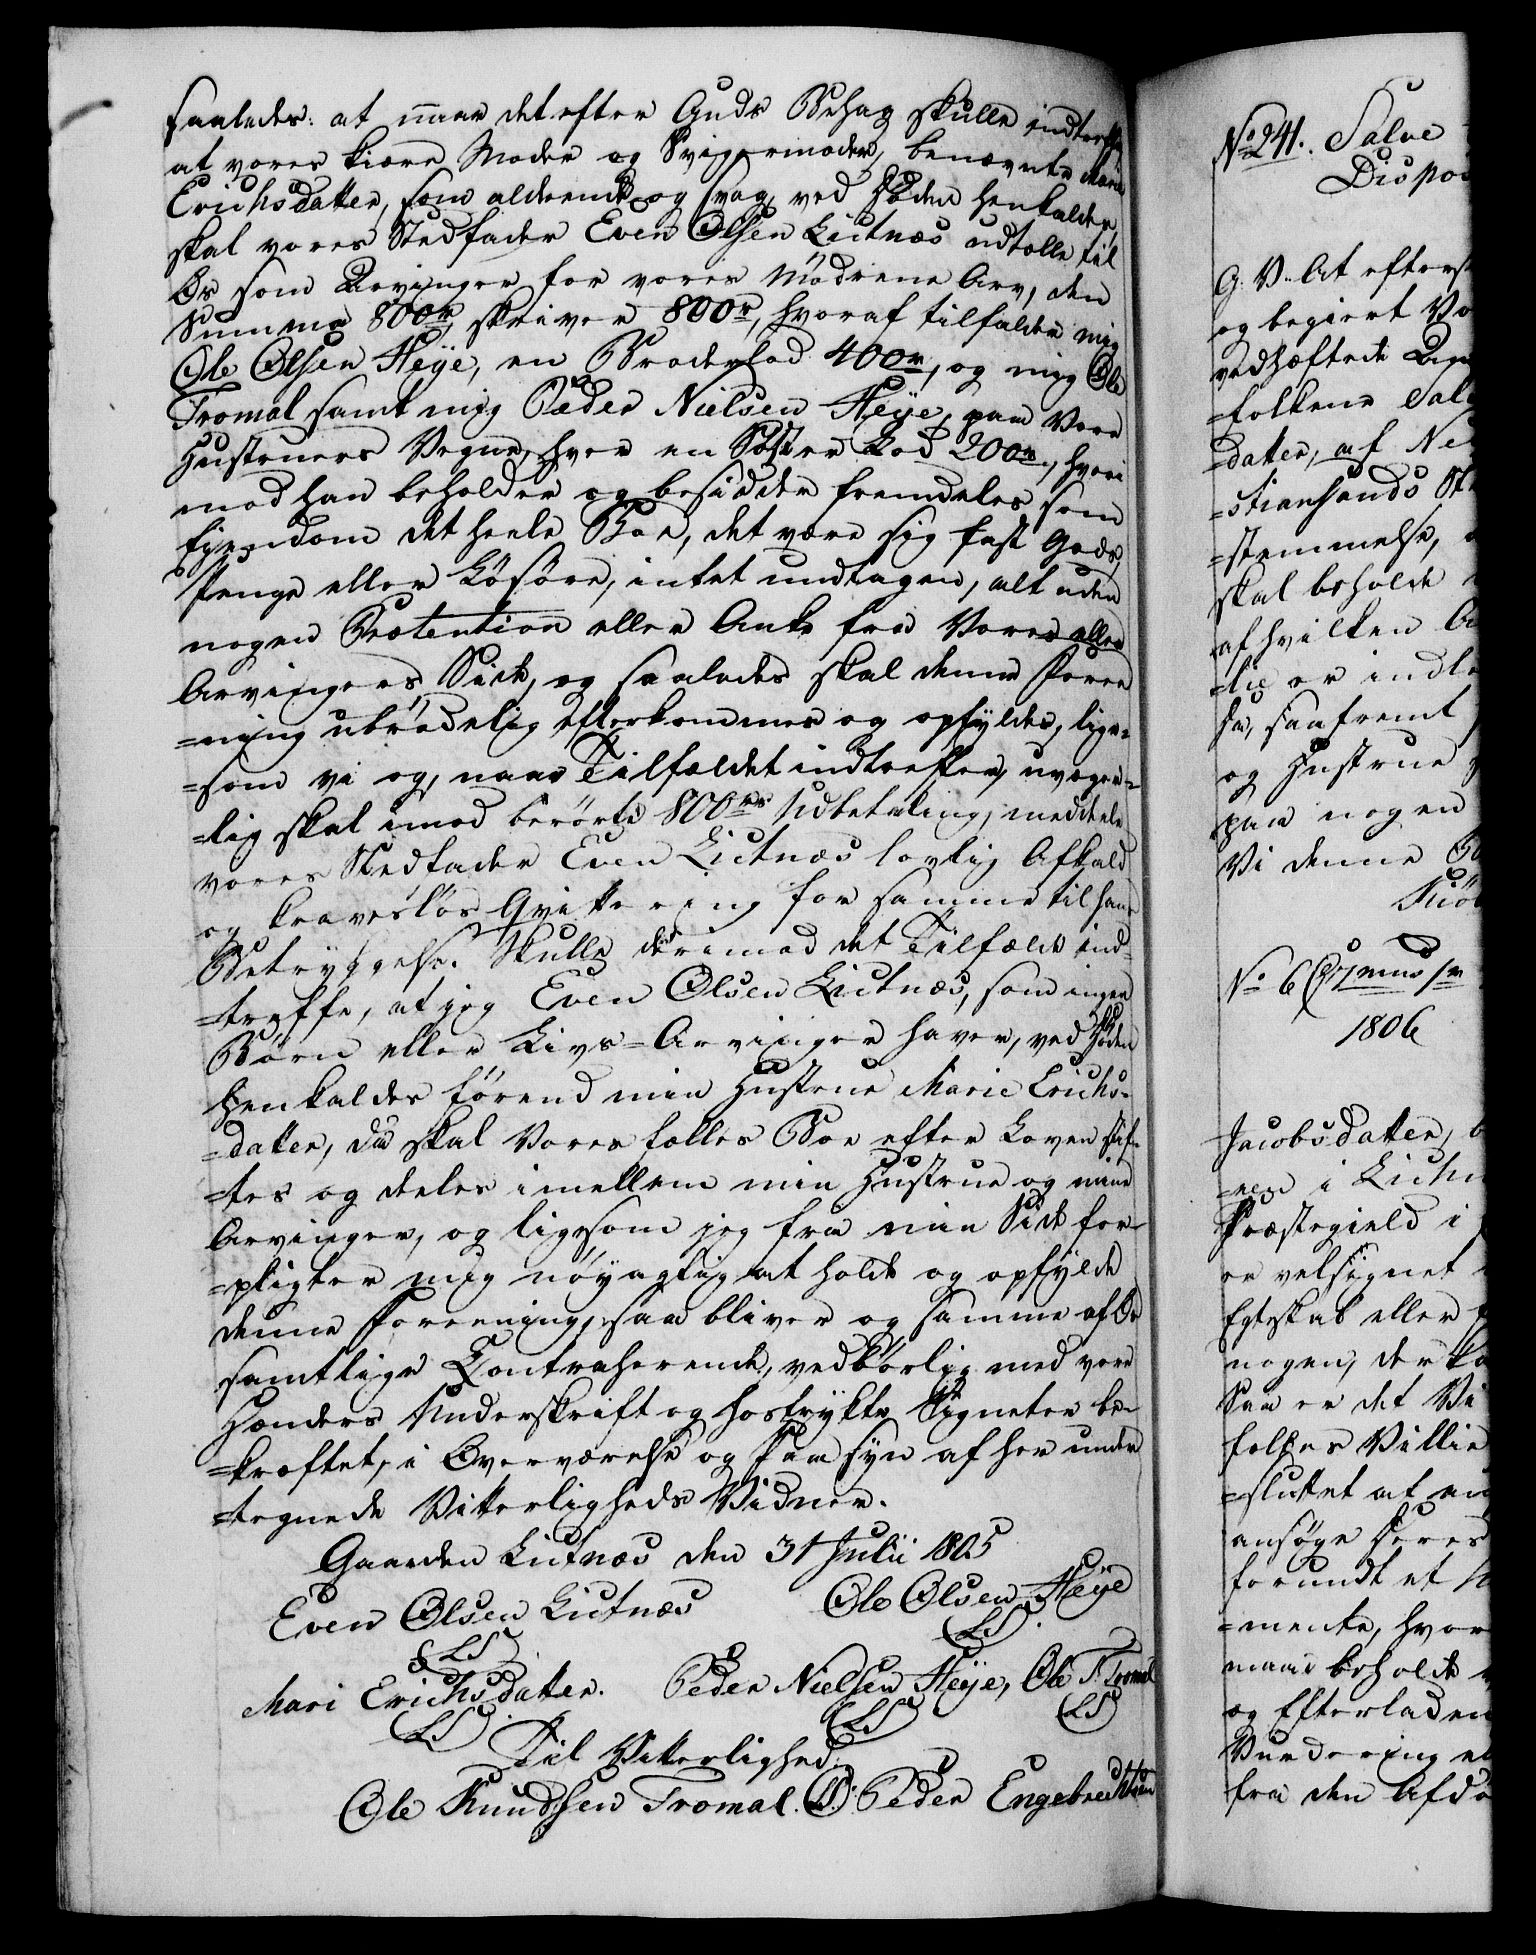 saaledes: at naar det efter Guds Behag skulle indtreffe
at vores kiære Moder og Svigermoder, benævnte Marie
Erichsdatter, som aldrende og svag, ved Døden henkaldes,
skal vores Stedfader Even Olsen Lutnæs udtælle til
Os som Arvinger for vores Mødrene Arv, den
Summa 800rd, skriver 800rd, hvoraf tilfalder mig
Ole Olsen Heÿe, en Broderlod 400rd, og mig Ole
Tromal samt mig Peder Nielsen Heÿe, paa Vore
Hustruers Vegne, hver en Søster Lod 200rd, hvori
mod han beholder og besidder fremdeles som
Eyendom det heele Boe, det være sig fast Gods,
Penge eller Løsøre, intet undtagen, alt uden
nogen Prætention eller Anke fra Vores eller
Arvingers Side, og saaledes skal denne Foree
=ning ubrødelig efterkommes og opfyldes, lige=
=som vi og, naar Tilfældet indtreffer, uvæger=
=lig skal imod berørte 800rds Udbetaling, meddele
vores Stedfader Even Lutnæs lovlig Afkald
og kravesløs Qvittering for samme til hans
Betryggelse. Skulle derimod det Tilfælde ind=
=treffe, at jeg Even Olsen Lutnæs, som ingen
Børn eller Livs=Arvinger haver, ved Døden
henkaldes førend min Hustrue Marie Erichs=
=datter, da skal Vores fælles Boe efter Loven skif=
=tes og deeles imellem min Hustrue og mine
Arvinger, og ligesom jeg fra min Side for=
=pligter mig nøyagtig at holde og opfylde
denne Foreening, saa bliver og samme af Os
samtlige Contraherende, vedbørlig med vore
Hænders Underskrift og hostrykte Signeter be=
=kræftet, i Overværelse og Paasyn af her under
=tegnede Vitterligheds Vidner.
Gaarden Lutnæs den 31 Julii 1805
Even Olsen Lutnæs Ole Olsen Heÿe
(LS) (LS)
Mari Erichsdatter. Peder Nielsen Heÿe, Ole T. Tromal
(LS) (LS) (LS)
Til Vitterlighed:
Ole Knudsen Tromal. (LS) Peder Engebrechtsen
No 241. Salve
Dispos
G. V. At efters
og begiert Vo
vedhæftede
=folkene Sal
=datter, af Ne
=stiansands St
=stemmelse,
skal beholde
af hvilken A
=die er indle
ha, saafremt
og Hustrue
paa nogen
Vi denne B
Kiöb
No 6
1806
Jacobsdatter, b
=nen i
Præstegield i
er velsignet
Egteskab eller
nogen, der ka
Saa er det Vi
folkes Villie
=sluttet at an
ansøge Deres
forundt et
=mente, hvor
maae beholde
og Efterladen
Vurdering el
fra den Afdø